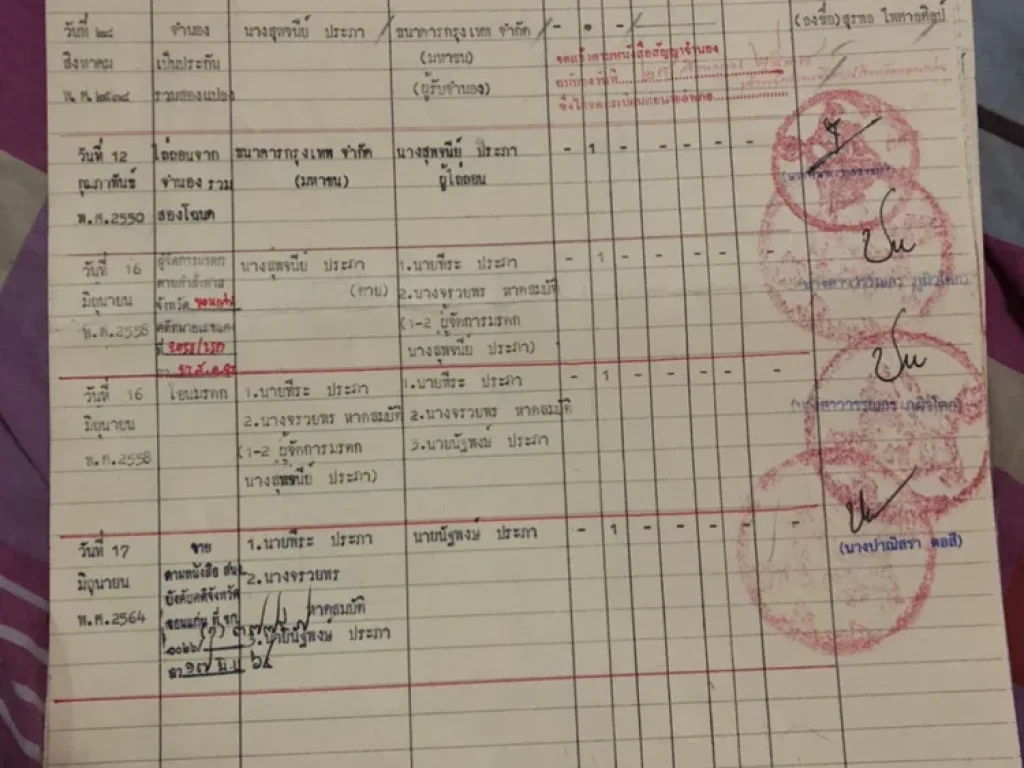 วันที่ ๒๘ จำนอง นางสุพจนีย์ ประภา ธนาคารกรุงเทพ จำกัด - ๑ - (ลงชื่อ)สุรพล ไพศาลศิลป์
สิงหาคม เป็นประกัน (มหาชน) จดแจ้งตามหนังสือสัญญาจำนอง
พ.ศ.๒๕๓๘ รวมสองแปลง (ผู้รับจำนอง) ฉบับลงวันที่
วันที่ 12 ไถ่ถอนจาก ธนาคารกรุงเทพ จำกัด นางสุพจนีย์ ประภา - 1 - - - - -
กุมภาพันธ์ จำนอง รวม (มหาชน) ผู้ไถ่ถอน
พ.ศ.2550 สองโฉนด
วันที่ 16 ผู้จัดการมรดก นางสุพจนีย์ ประภา 1.นายพีระ ประภา - 1 - - - - -
มิถุนายน ตามคำสั่งศาล (ตาย) 2.นางจรวยพร หาคสมบัติ
จังหวัด ขอนแก่น
พ.ศ.2558 คดีหมายเลขแดง (1-2 ผู้จัดการมรดก
ที่ นางสุพจนีย์ ประภา)
วันที่ 16 โอนมรดก 1.นายพีระ ประภา 1.นายพีระ ประภา - 1 - - - - -
มิถุนายน 2.นางจรวยพร หาคสมบัติ 2.นางจรวยพร หาคสมบัติ
พ.ศ.2558 (1-2 ผู้จัดการมรดก 3.นายนัฐพงษ์ ประภา
นางสุพจนีย์ ประภา)
วันที่ 17 ขาย 1.นายพีระ ประภา นายนัฐพงษ์ ประภา - 1 - - - - -
(นางปาณิสรา ตอสี)
มิถุนายน ตามหนังสือ สนง. 2.นางจรวยพร
บังคับคดีจังหวัด
พ.ศ.2564 ขอนแก่น ที่ หาคสมบัติ
3.นายนัฐพงษ์ ประภา